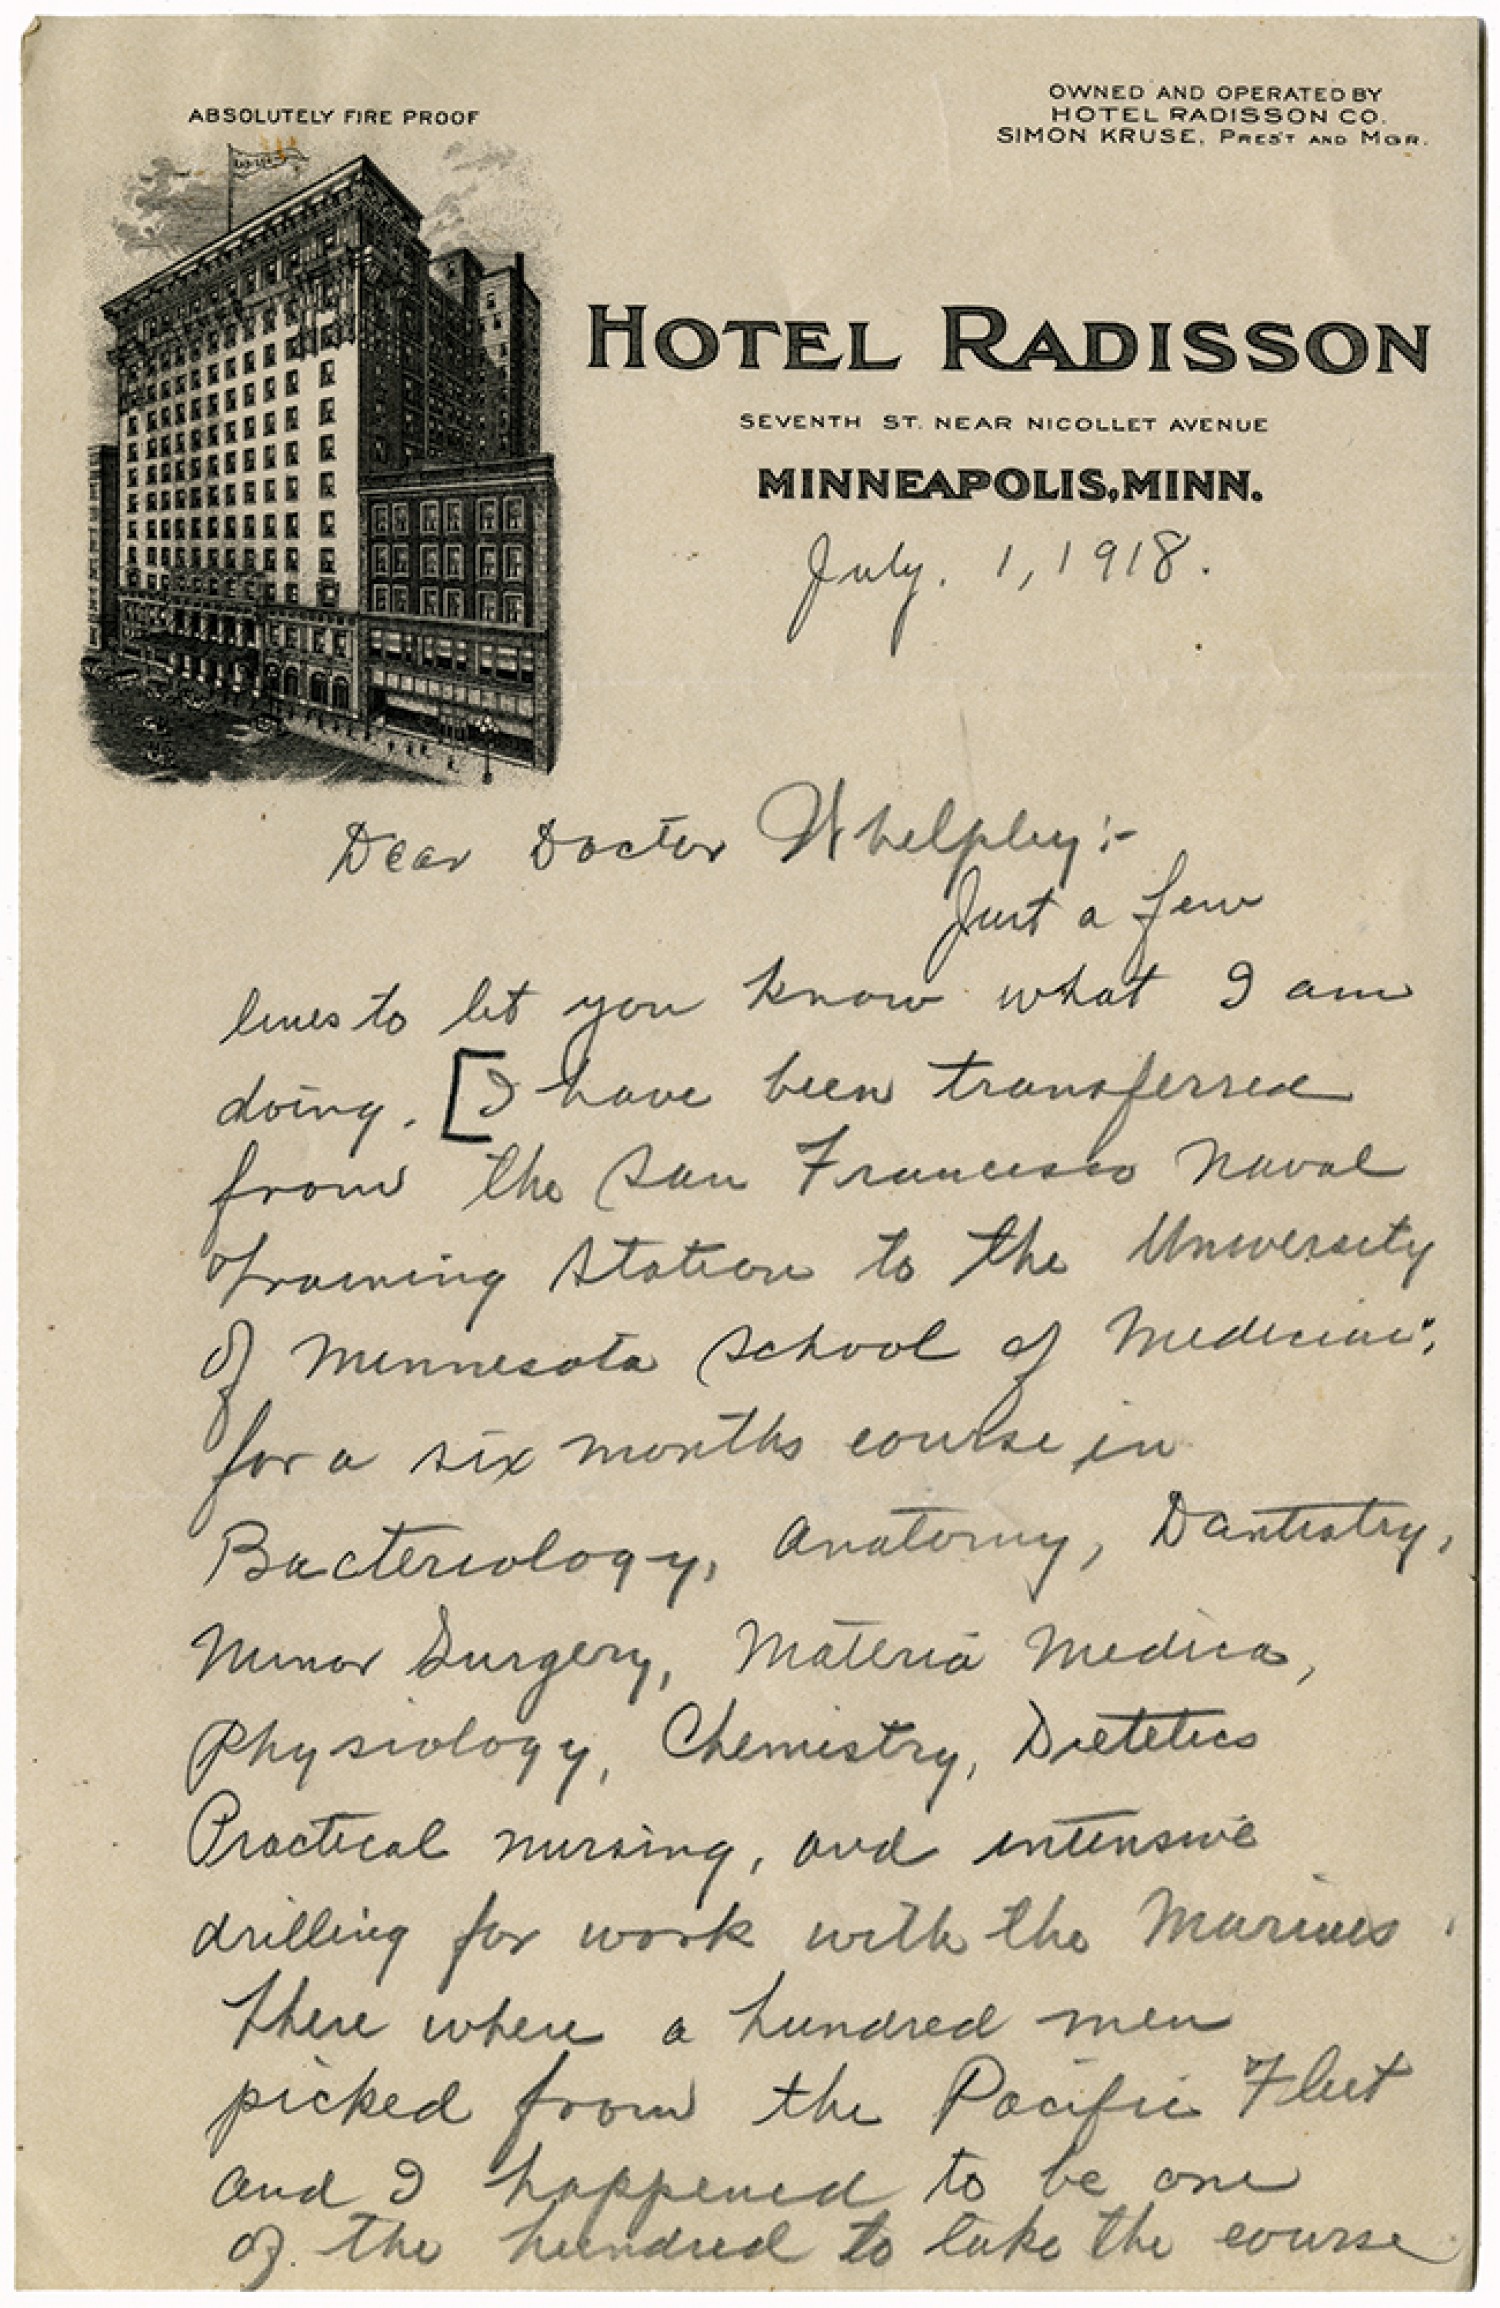 ABSOLUTELY FIRE PROOF
OWNED AND OPERATED BY
HOTEL RADISSON CO.
SIMON KRUSE, PRES'T AND MGR.
HOTEL RADISSON
SEVENTH ST. NEAR NICOLLET AVENUE
MINNEAPOLIS, MINN.
July. 1, 1918.
Dear Doctor Whelpley:-
Just a few
lines to let you know what I am
doing. [I have been transferred
from the San Francisco Naval
Training Station to the University
of Minnesota School of Medicine;
for a six months course in
Bacteriology, Anatomy, Dantistry,
Minor Surgery, Materia Medica,
Physiology, Chemistry, Dietetics
Practical nursing, and intensive
drilling for work with the Marines.
There where a hundred men
picked from the Pacific Fleet
and I happened to be one
of the hundred to take the course